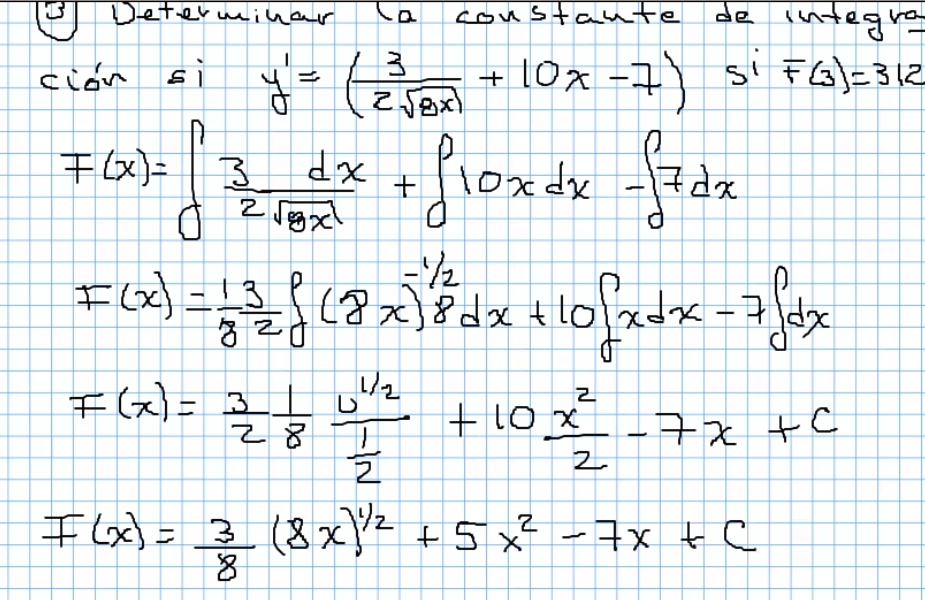 3) Determinar la constante de integra
ción si y' = (3/(2√(8x)) + 10x - 7) si F(3)=312
F(x)= ∫ 3 dx/(2√(8x)) + ∫10x dx - ∫7dx
F(x) = 1/8 3/2 ∫ (8x)^(-1/2) 8dx + 10∫xdx - 7∫dx
F(x) = 3/2 1/8 U^(1/2)/(1/2) + 10 x²/2 - 7x + C
F(x) = 3/8 (8x)^(1/2) + 5x² - 7x + C